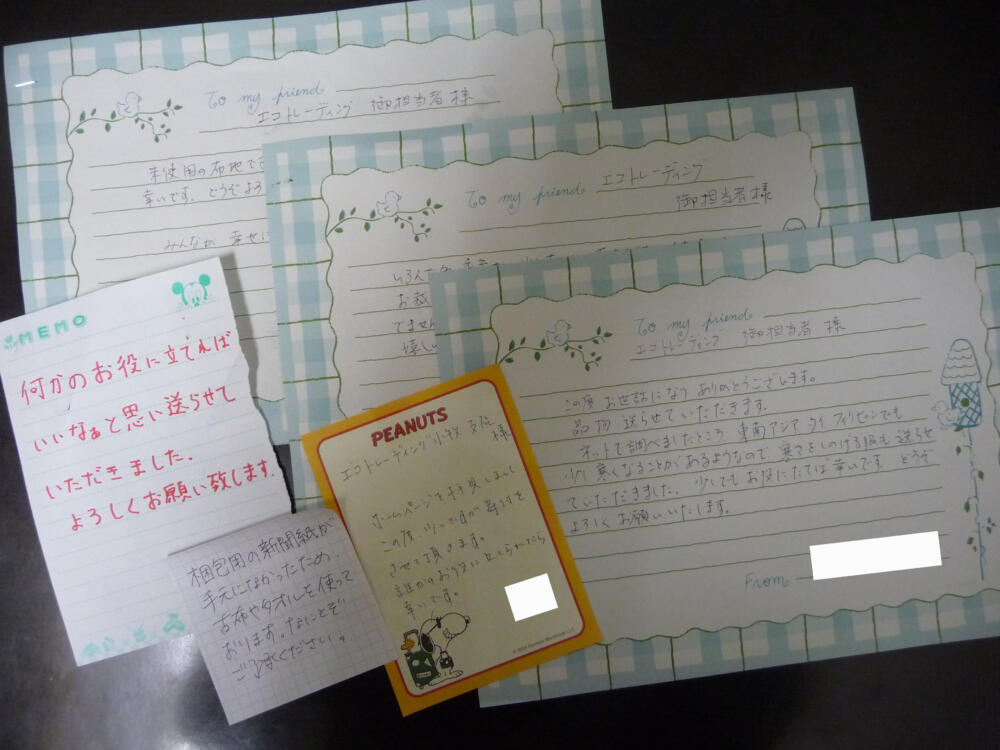 To my friend
エコトレーディング 御担当者様
未使用の布地で
幸いです。どうぞよろ
みんなが 幸せに
To my friend エコトレーディング
御担当者様
お裁
てません
嬉し
To my friend
エコトレーディング 御担当者様
この度 お世話になり ありがとうございます。
品物 送らせていただきます。
ネットで調べましたところ 東南アジア タイ フィリピンでも
少し寒くなることがあるようなので 寒さをしのげる服も 送らせ
ていただきました。少しでも お役にたてば 幸いです。どうぞ
よろしく お願いいたします。
From
MEMO
何かのお役に立てれば
いいなぁと思い送らせて
いただきました。
よろしくお願い致します。
梱包用の新聞紙が
手元になかったため、
古布やタオルを使って
おります。なにとぞ
ご了承ください。
PEANUTS
エコトレーディング 様
ホームページを拝見しまして
この度、少しですが寄付を
させて頂きます。
誰かのお役に立てられたら
幸いです。